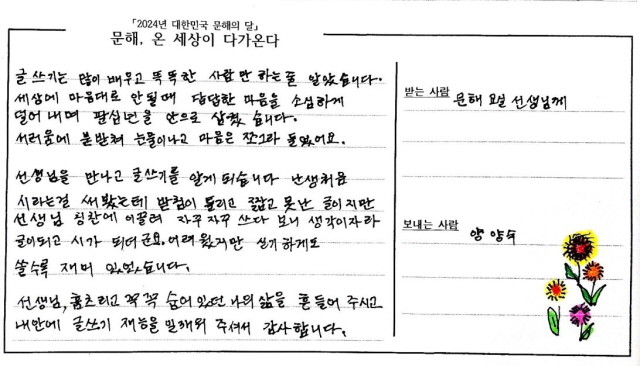 「2024년 대한민국 문해의 달」
문해, 온 세상이 다가온다
글쓰기는 많이 배우고 똑똑한 사람만 하는줄 알았습니다.
세상에 마음대로 안될때 답답한 마음을 소심하게
덜어내며 팔십년을 안으로 삼켰습니다.
서러움에 북받쳐 눈물이나고 마음은 쪼그라 들었어요.
선생님을 만나고 글쓰기를 알게 되습니다 난생처음
시라는걸 써봤는데 받침이 틀리고 짧고 못난 글이지만
선생님 칭찬에 이끌려 자꾸자꾸 쓰다 보니 생각이자라
글이되고 시가 되더군요. 어려웠지만 신기하게도
쓸수록 재미 있었습니다.
선생님, 움츠리고 꼭꼭 숨어있던 나의 삶을 흔들어 주시고
내안에 글쓰기 재능을 일깨워 주셔서 감사합니다.
받는 사람
문해 교실 선생님께
보내는 사람
양 양숙